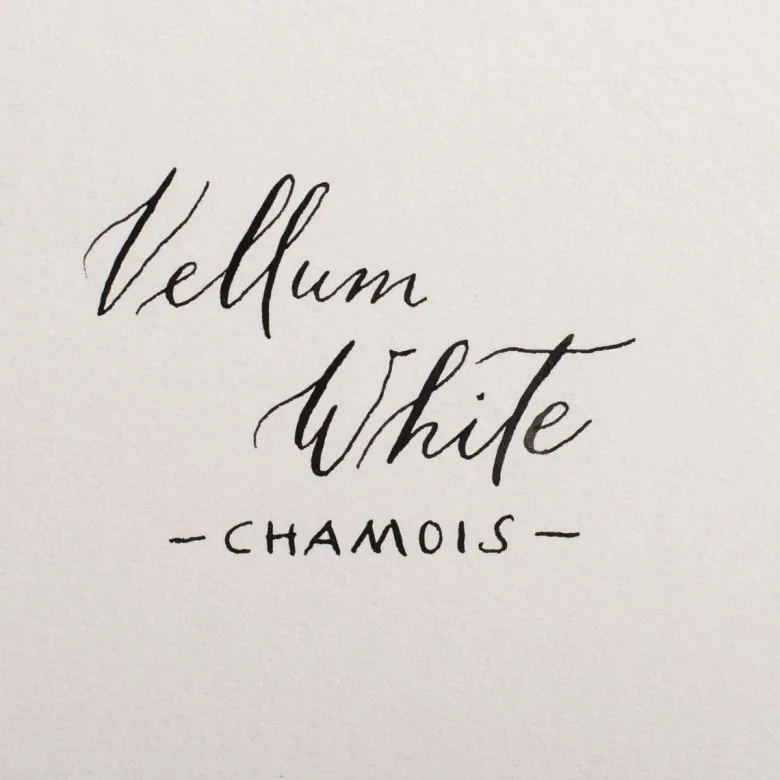 Vellum
White
- CHAMOIS -